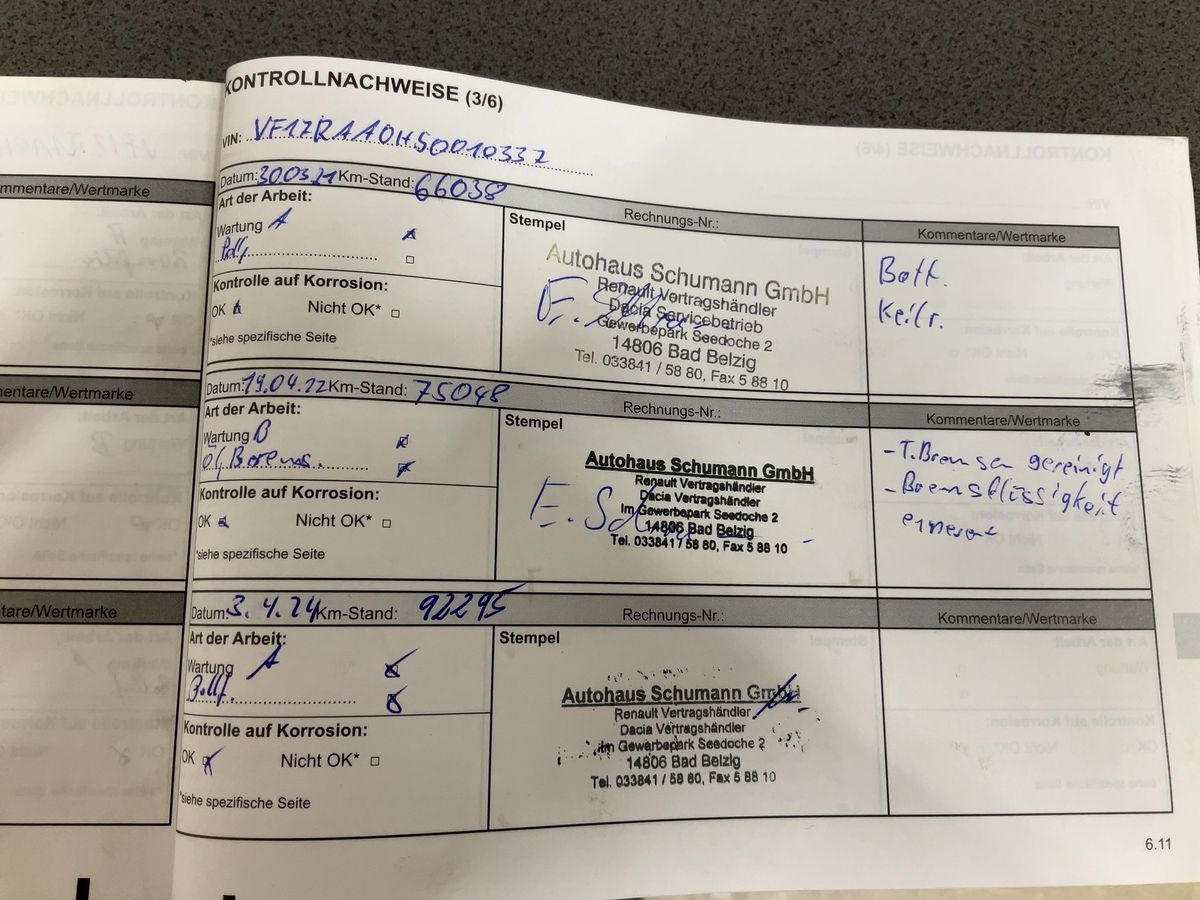 KONTROLLNACHWEISE (3/6)
VIN: VF1ZRAA0H50010337
Datum: 300321 Km-Stand: 66038
Art der Arbeit:
Wartung A
Kontrolle auf Korrosion:
OK Nicht OK*
*siehe spezifische Seite
Stempel
Rechnungs-Nr.:
Autohaus Schumann GmbH
Renault Vertragshändler
Dacia Servicebetrieb
Gewerbepark Seedoche 2
14806 Bad Belzig
Tel. 033841 / 58 80, Fax 5 88 10
Kommentare/Wertmarke
Batt.
Keilr.
Datum: 19.04.22 Km-Stand: 75048
Art der Arbeit:
Wartung B
Kontrolle auf Korrosion:
OK Nicht OK*
*siehe spezifische Seite
Stempel
Rechnungs-Nr.:
Autohaus Schumann GmbH
Renault Vertragshändler
Dacia Vertragshändler
Im Gewerbepark Seedoche 2
14806 Bad Belzig
Tel. 033841 / 58 80, Fax 5 88 10
Kommentare/Wertmarke
- T. Bremsen gereinigt
- Bremsflüssigkeit
erneuert
Datum: 3.4.24 Km-Stand: 92295
Art der Arbeit:
Wartung A
Kontrolle auf Korrosion:
OK Nicht OK*
*siehe spezifische Seite
Stempel
Rechnungs-Nr.:
Autohaus Schumann GmbH
Renault Vertragshändler
Dacia Vertragshändler
Im Gewerbepark Seedoche 2
14806 Bad Belzig
Tel. 033841 / 58 80, Fax 5 88 10
Kommentare/Wertmarke
6.11
mmentare/Wertmarke
mentare/Wertmarke
tare/Wertmarke